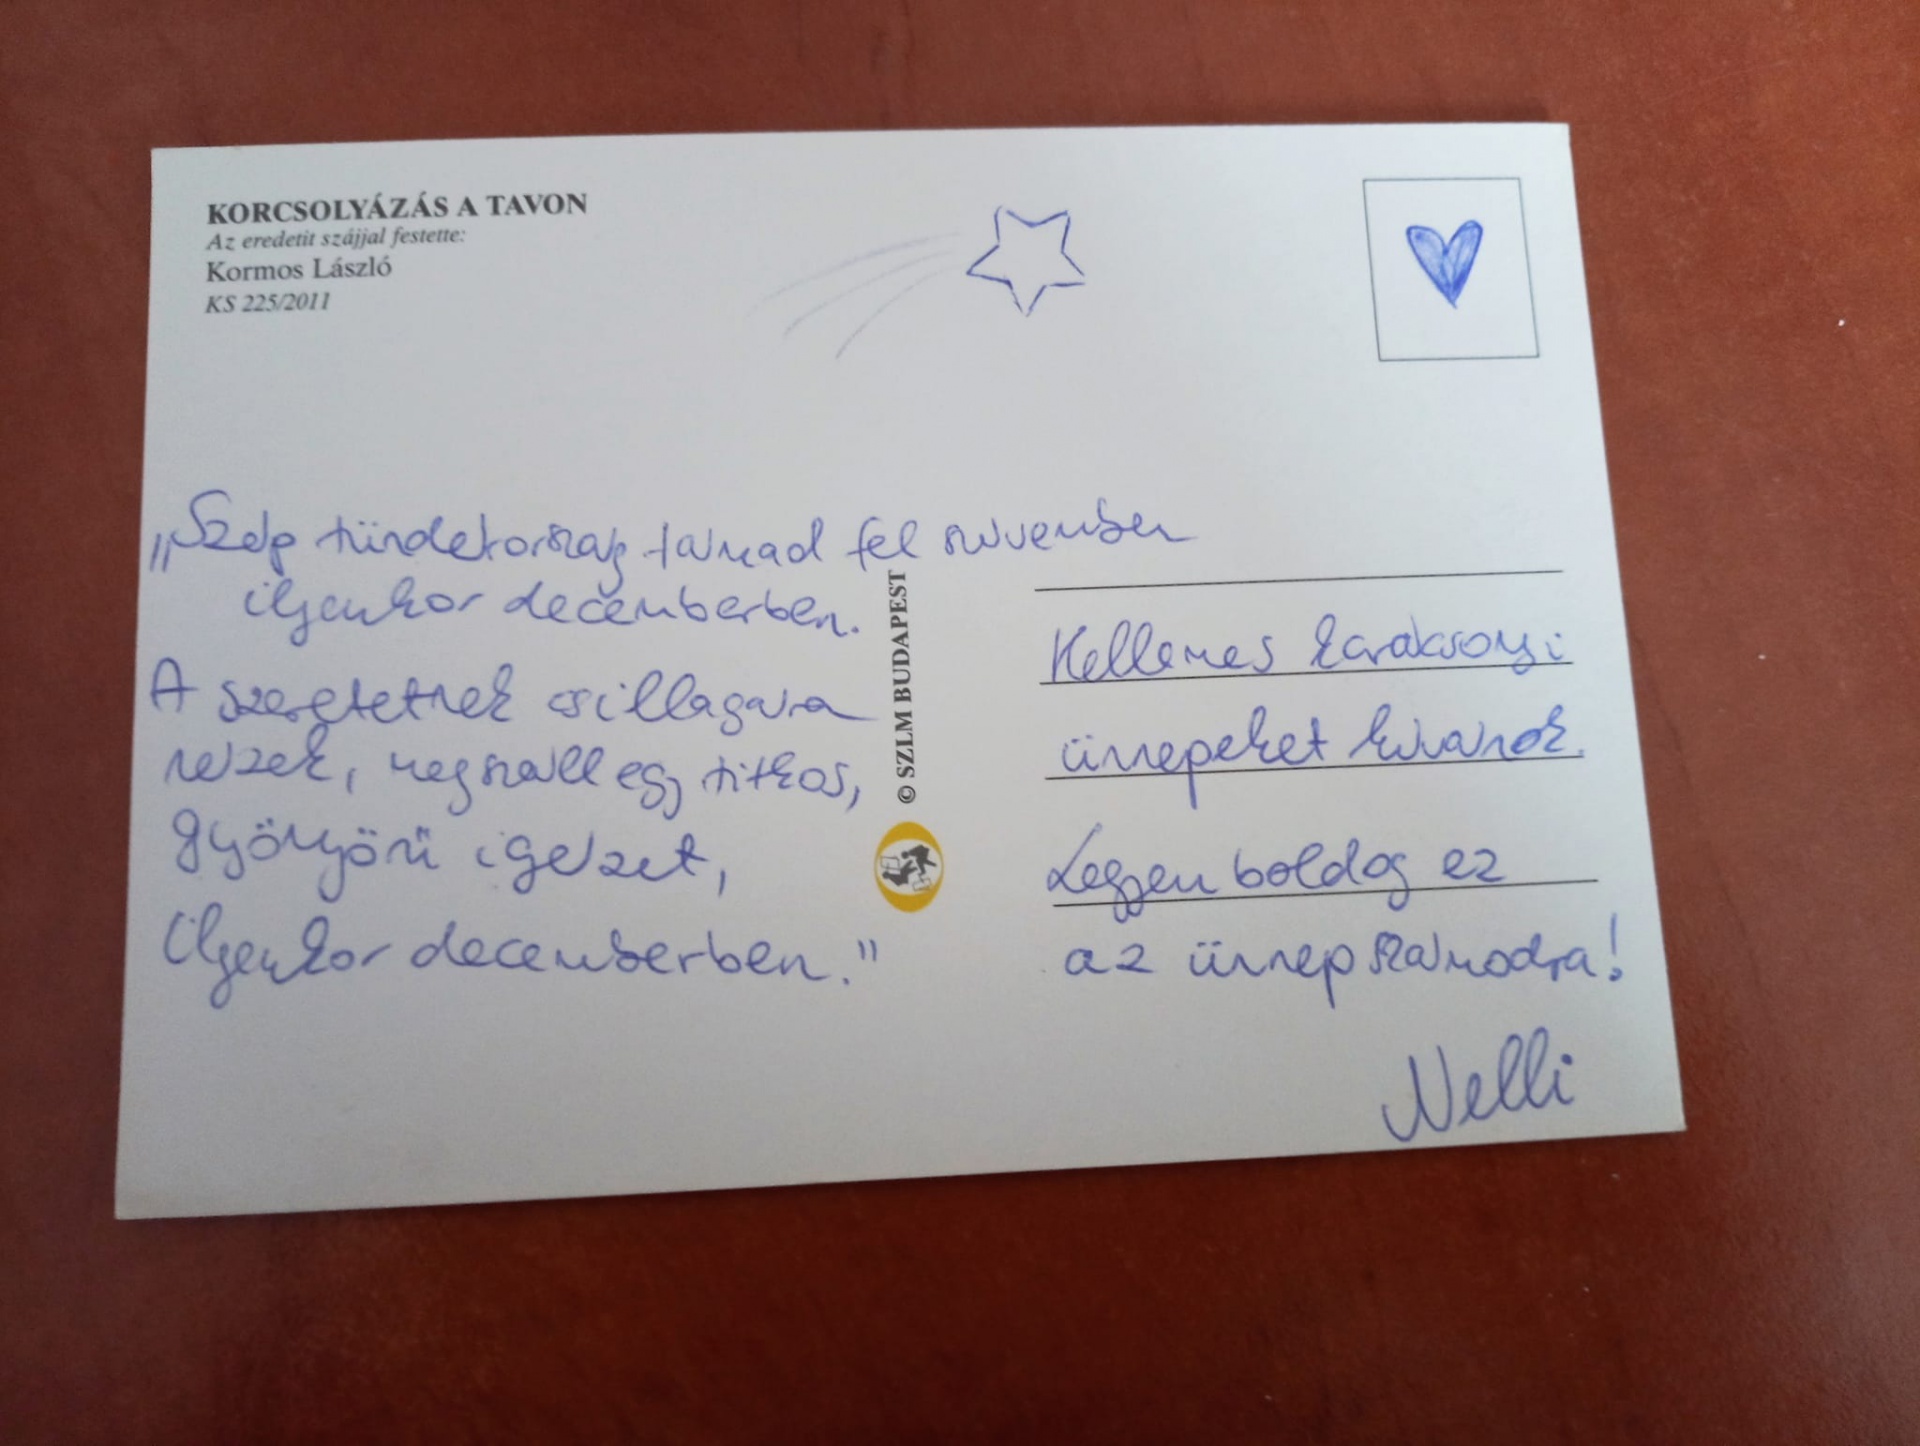 KORCSOLYÁZÁS A TAVON
Az eredetit szájjal festette:
Kormos László
KS 225/2011
„Szép tündérország támad fel szívemben
ilyenkor decemberben.
A szeretetnek csillagára
nézek, megszáll egy titkos,
gyönyörű igézet,
Ilyenkor decemberben."
© SZLM BUDAPEST
Kellemes karácsonyi
ünnepeket kívánok.
Legyen boldog ez
az ünnep számodra!
Nelli